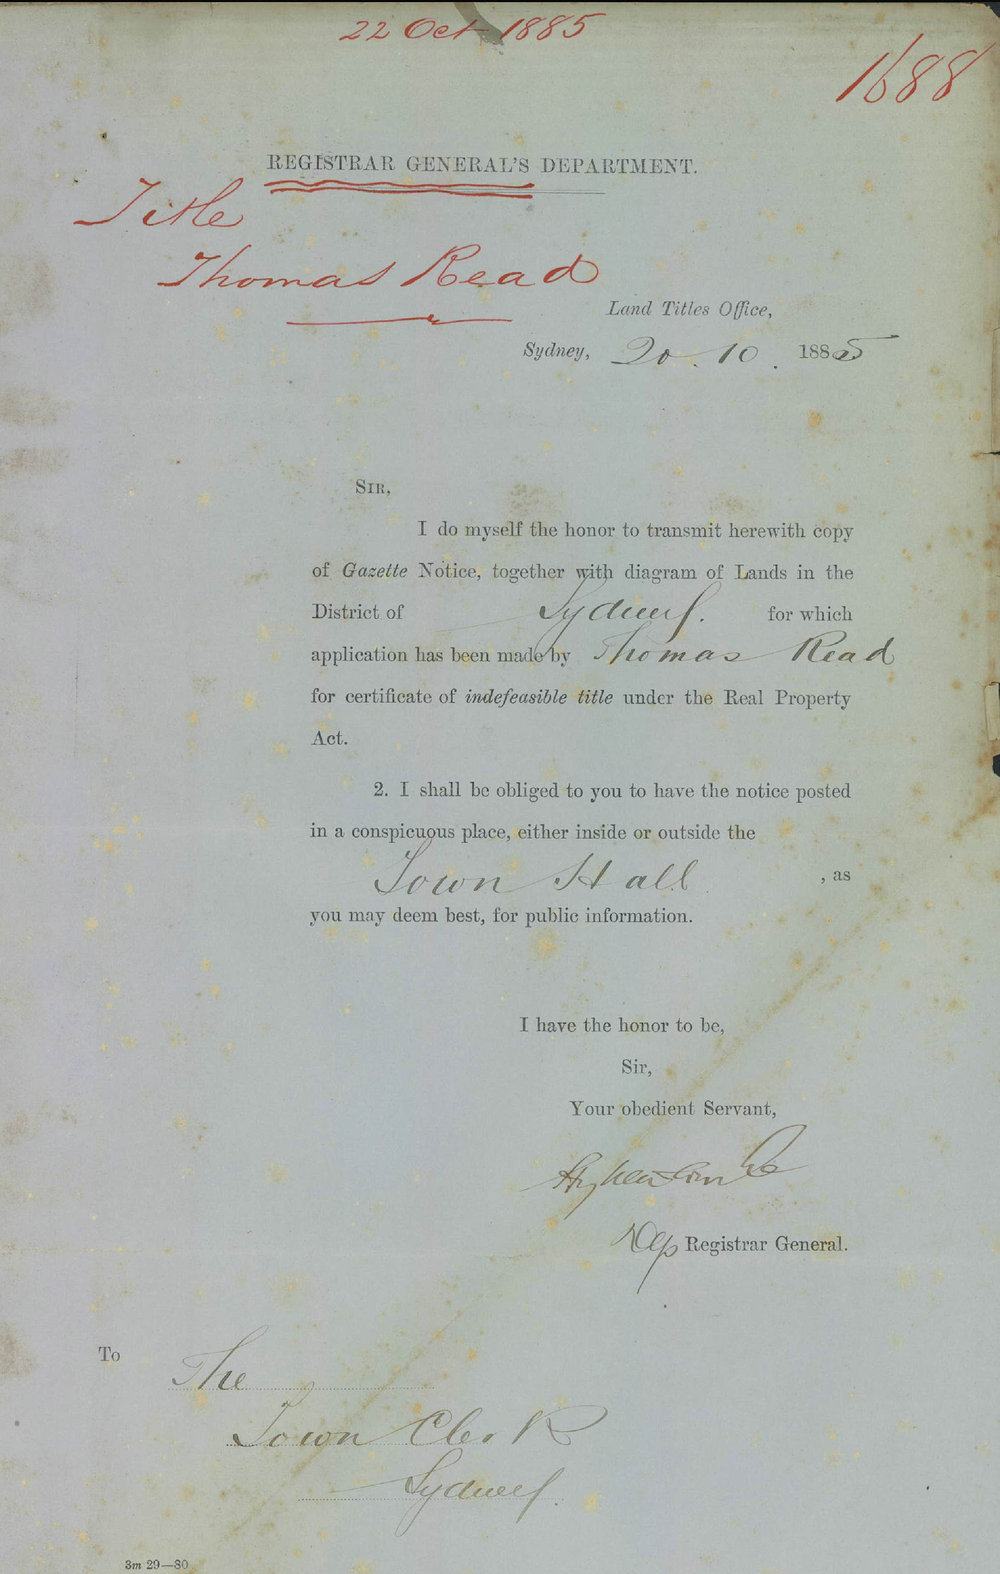 22 Oct 1885
1688
REGISTRAR GENERAL'S DEPARTMENT.
Title
Thomas Read
Land Titles Office,
Sydney, 20. 10. 1885
SIR,
I do myself the honor to transmit herewith copy
of Gazette Notice, together with diagram of Lands in the
District of Sydney. for which
application has been made by Thomas Read
for certificate of indefeasible title under the Real Property
Act.
2. I shall be obliged to you to have the notice posted
in a conspicuous place, either inside or outside the
Town Hall , as
you may deem best, for public information.
I have the honor to be,
Sir,
Your obedient Servant,
Dep Registrar General.
To The
Town Clerk
Sydney.
3m 29—80